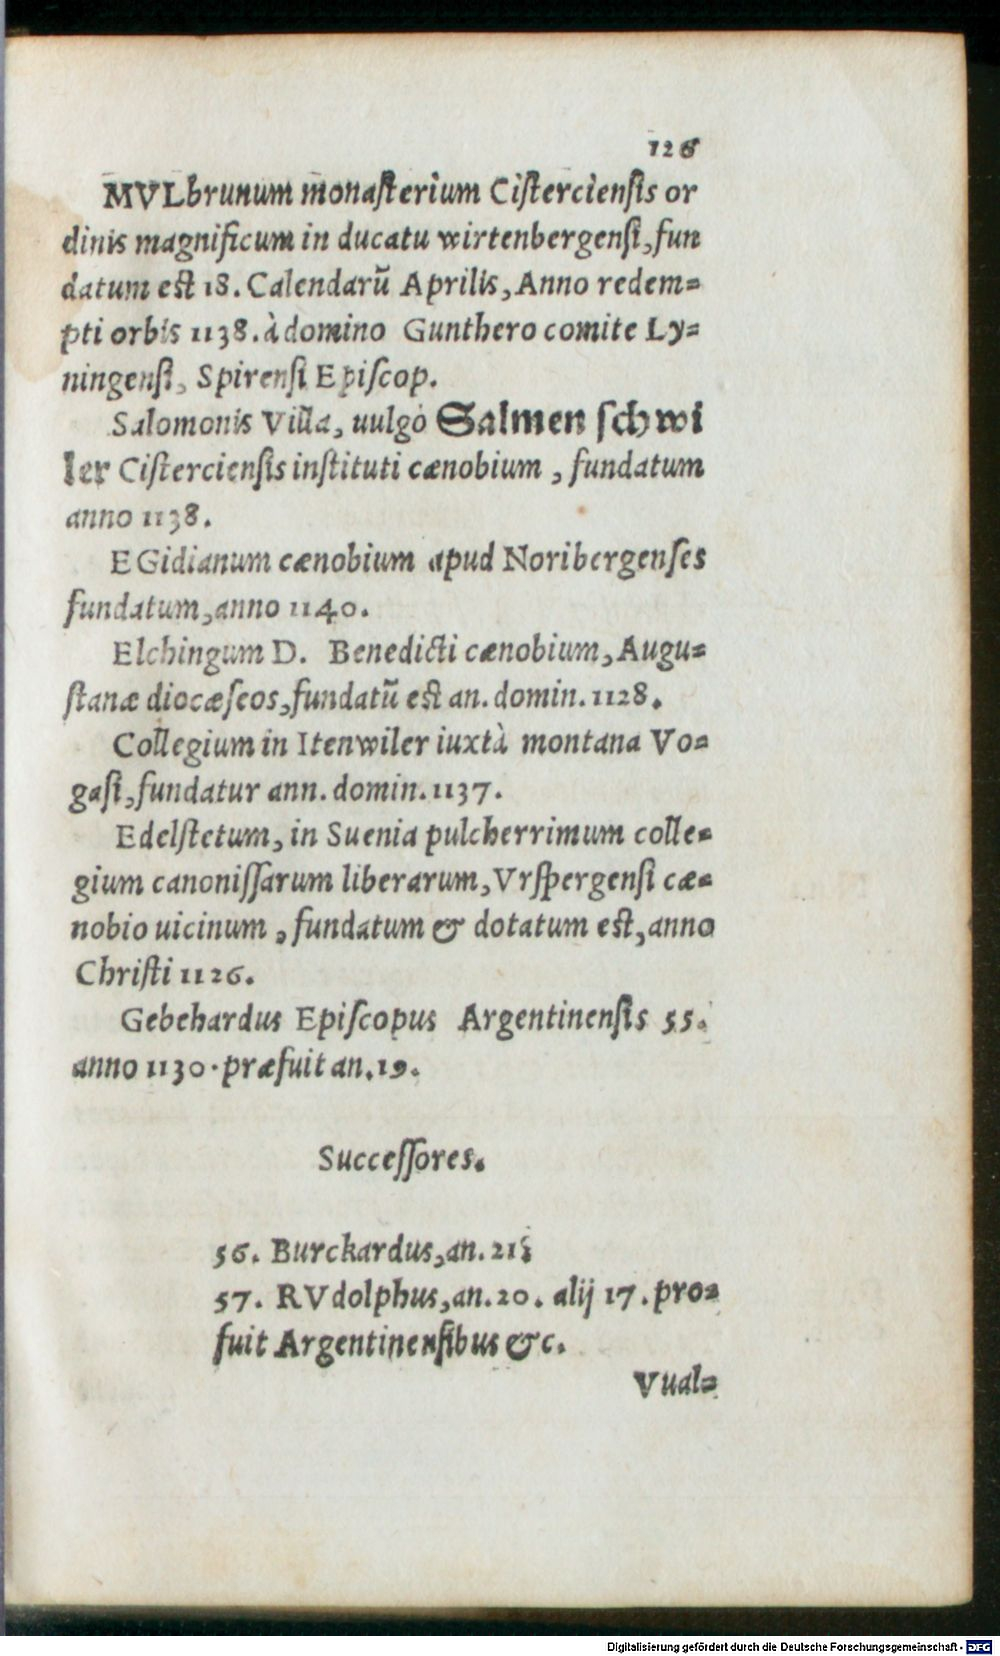 126
MVLbrunum monasterium Cisterciensis or
dinis magnificum in ducatu wirtenbergensi, fun
datum est 18. Calendarũ Aprilis, Anno redem=
pti orbis 1138. à domino Gunthero comite Ly=
ningensi, Spirensi Episcop.
Salomonis Villa, uulgò Salmen schwi
ler Cisterciensis instituti cænobium, fundatum
anno 1138.
EGidianum cænobium apud Noribergenses
fundatum, anno 1140.
Elchingum D. Benedicti cænobium, Augu=
stanæ diocæseos, fundatũ est an. domin. 1128.
Collegium in Itenwiler iuxtà montana Vo=
gasi, fundatur ann. domin. 1137.
Edelstetum, in Sueuia pulcherrimum colle=
gium canonissarum liberarum, Vrspergensi cæ=
nobio uicinum, fundatum & dotatum est, anno
Christi 1126.
Gebehardus Episcopus Argentinensis 55.
anno 1130. præfuit an. 19.
Successores.
56. Burckardus, an. 21;
57. RVdolphus, an. 20. alij 17. pro=
fuit Argentinensibus &c.
Vual=
Digitalisierung gefördert durch die Deutsche Forschungsgemeinschaft - DFG